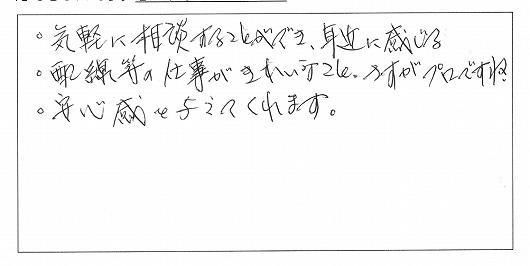 。気軽に相談することができ、身近に感じる
。配線等の仕事がきれいなこと。さすがプロですね
。安心感を与えてくれます。